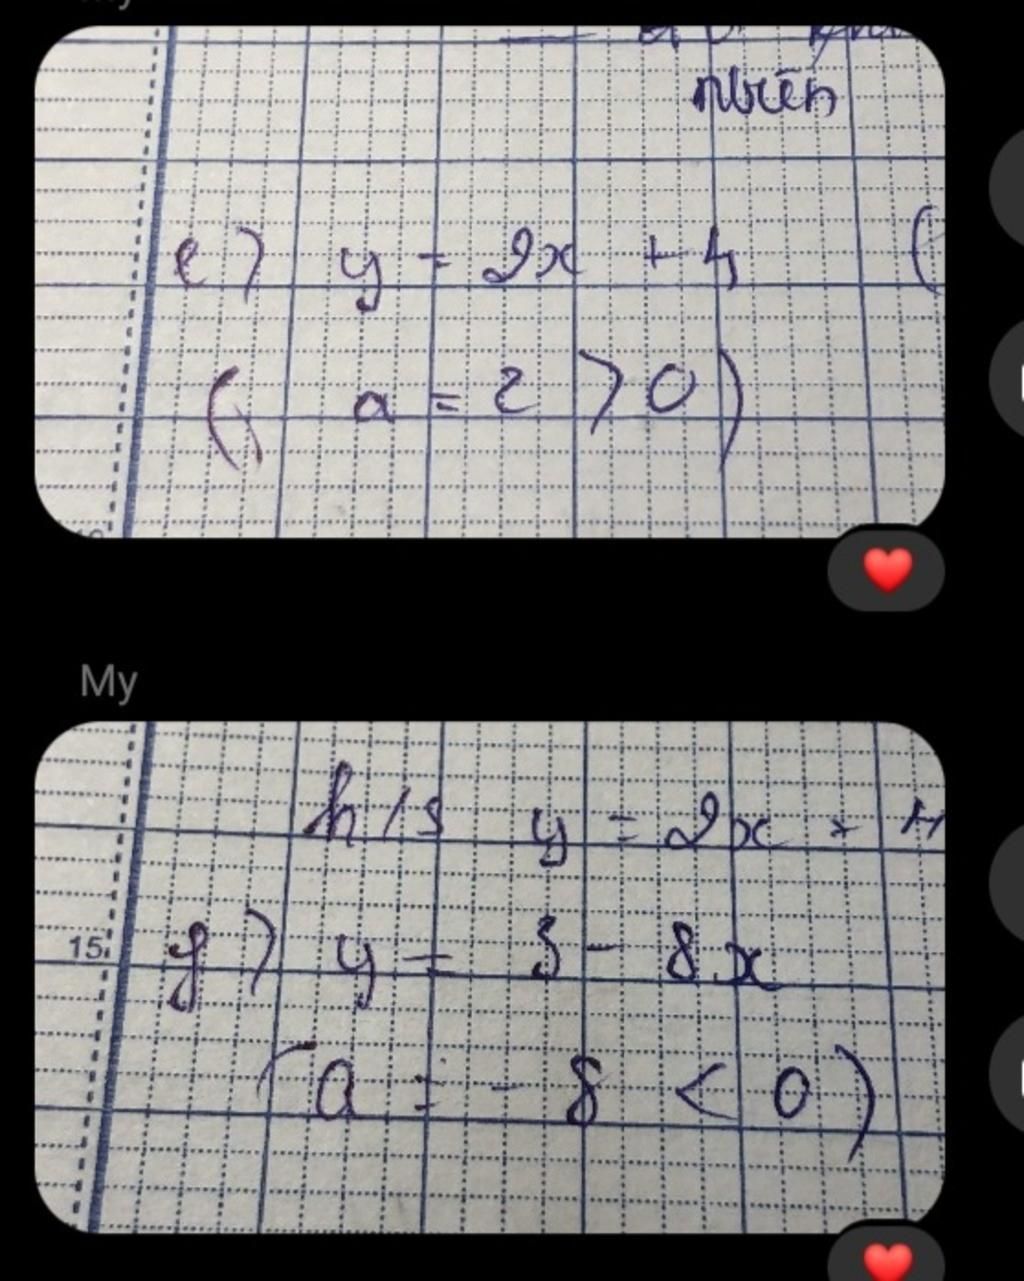 nhiên
e) y = 2x + 4 (
( a = 2 > 0 )
My
h/s y = 2x + 4
15
g) y = 3 - 8x
(a = - 8 < 0)